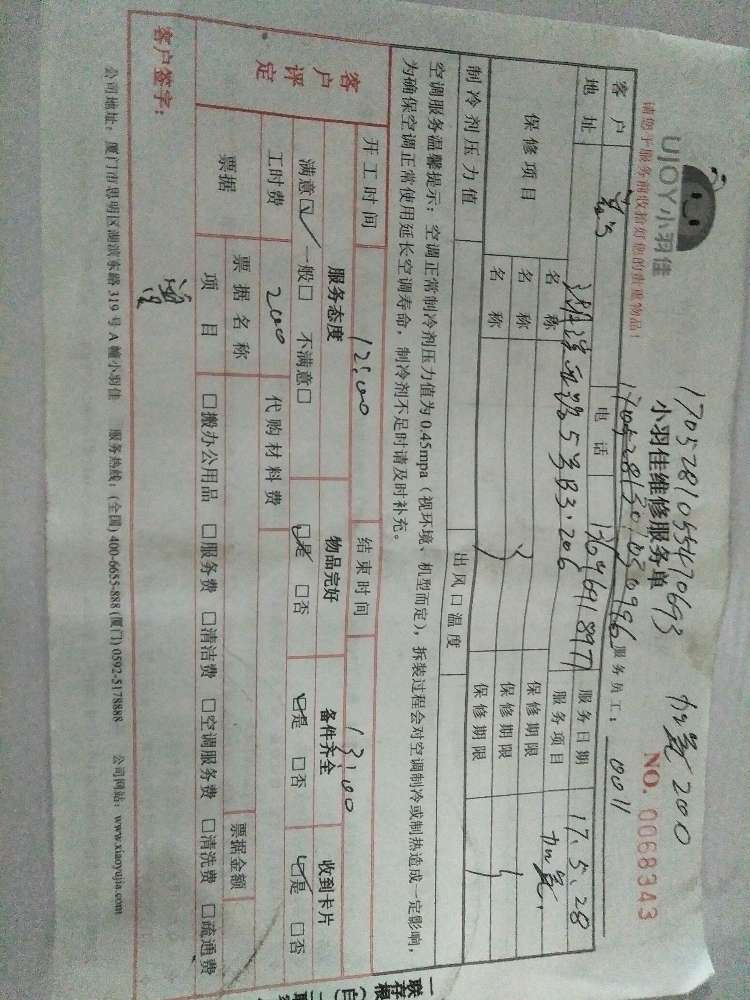 UJOY小羽佳
1705281055470693
加氨200
小羽佳维修服务单
NO. 0068343
请您于服务前收拾好您的贵重物品!
服务员工: 0011
客户
电话
服务日期 17.5.28
地址
5号B3.206
服务项目
保修项目 名称 保修期限
名称 保修期限
名称 保修期限
制冷剂压力值 出风口温度
空调服务温馨提示:空调正常制冷剂压力值为0.45mpa(视环境、机型而定),拆装过程会对空调制冷或制热造成一定影响,
为确保空调正常使用延长空调寿命,制冷剂不足时请及时补充。
开工时间 12:00 结束时间 13:00
客户评定
服务态度 物品完好 备件齐全 收到卡片
满意☑ 一般□ 不满意□ ☑是 □否 ☑是 □否 ☑是 □否
工时费 200 代购材料费
票据 票据名称 票据金额
项目 □搬办公用品 □服务费 □清洁费 □空调服务费 □清洗费 □疏通费
客户签字:
公司地址:厦门市思明区湖滨东路319号A幢小羽佳 服务热线:(全国) 400-6655-888 (厦门) 0592-5178888 公司网站:www.xiaoyujia.com
一联存根